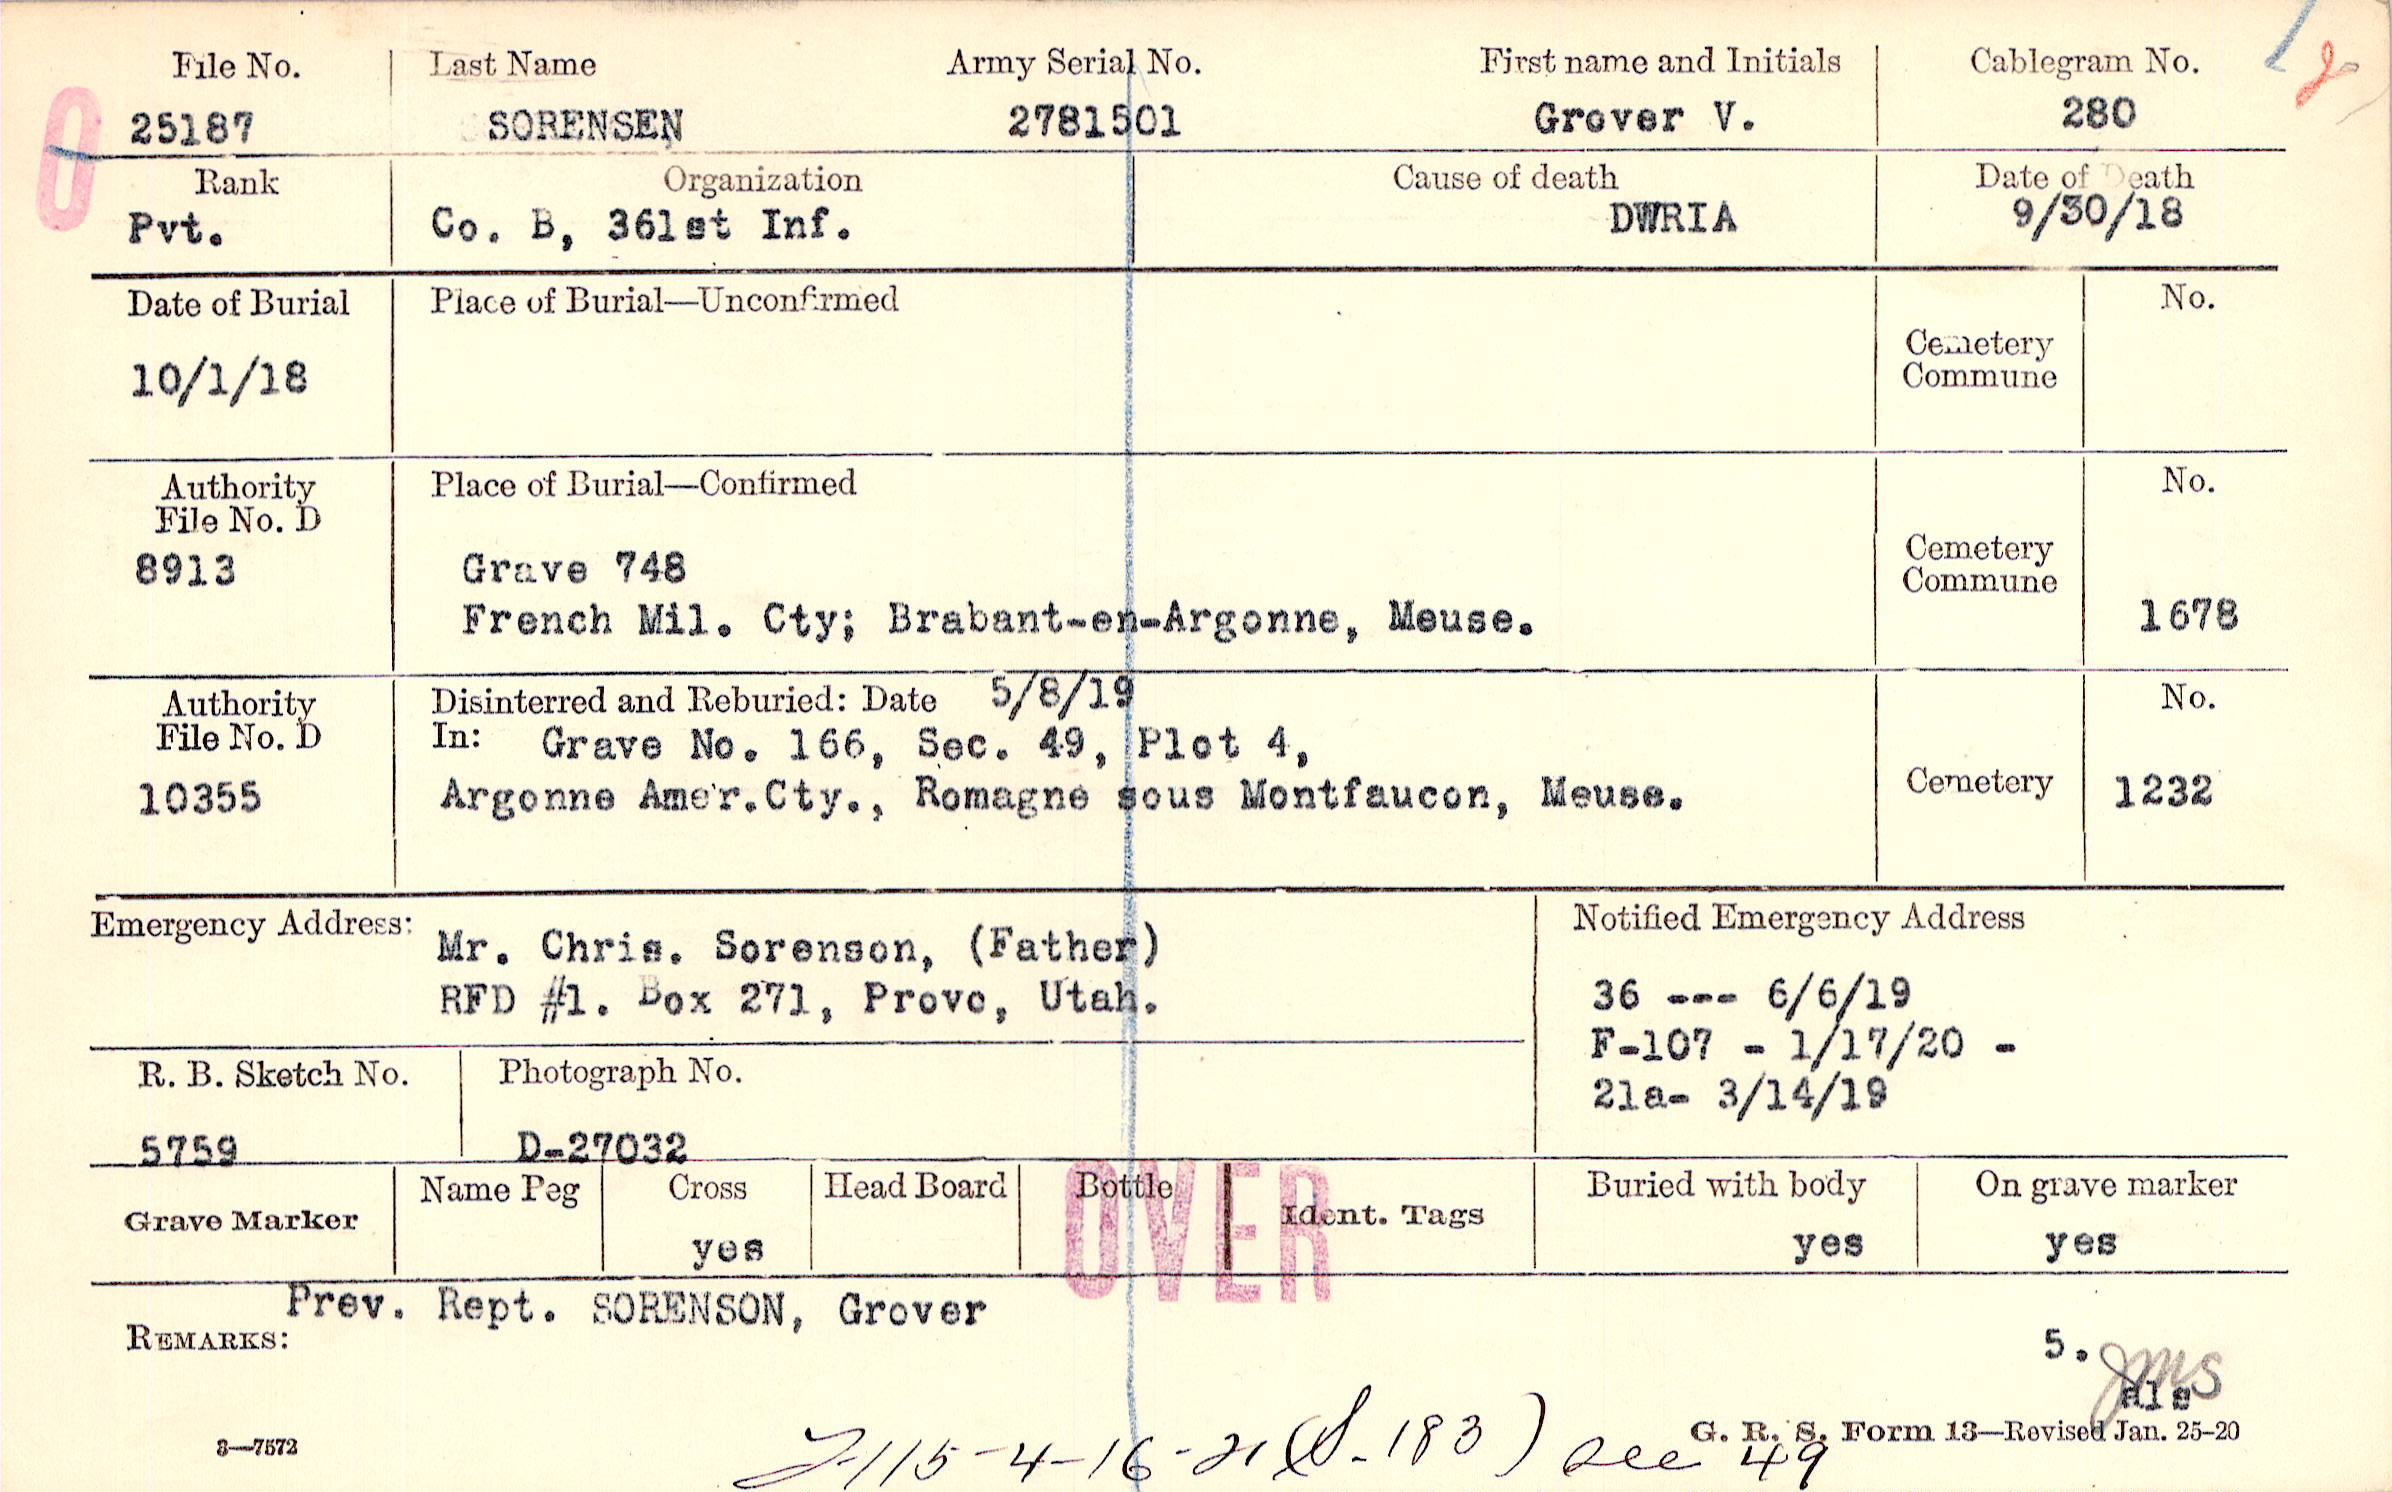 File No. Last Name Army Serial No. First name and Initials Cablegram No.
25187 SORENSEN 2781501 Grover V. 280
Rank Organization Cause of death Date of Death
Pvt. Co. B, 361st Inf. DWRIA 9/30/18
Date of Burial Place of Burial—Unconfirmed No.
10/1/18
Cemetery
Commune
Authority Place of Burial—Confirmed No.
File No. D
8913 Grave 748 Cemetery
Commune
French Mil. Cty; Brabant-en-Argonne, Meuse. 1678
Authority Disinterred and Reburied: Date 5/8/19 No.
File No. D In: Grave No. 166, Sec. 49, Plot 4,
10355 Argonne Amer.Cty., Romagne sous Montfaucon, Meuse. Cemetery 1232
Emergency Address: Notified Emergency Address
Mr. Chris. Sorenson, (Father)
RFD #1. Box 271, Provo, Utah.
36 --- 6/6/19
F-107 - 1/17/20 -
21a- 3/14/19
R. B. Sketch No. Photograph No.
5759 D-27032
Grave Marker Name Peg Cross Head Board Bottle Ident. Tags Buried with body On grave marker
yes yes yes
OVER
Prev. Rept. SORENSON, Grover
REMARKS:
5.
JMS
als
G. R. S. Form 13—Revised Jan. 25-20
3—7572
115-4-16-21 (S-183) see 49